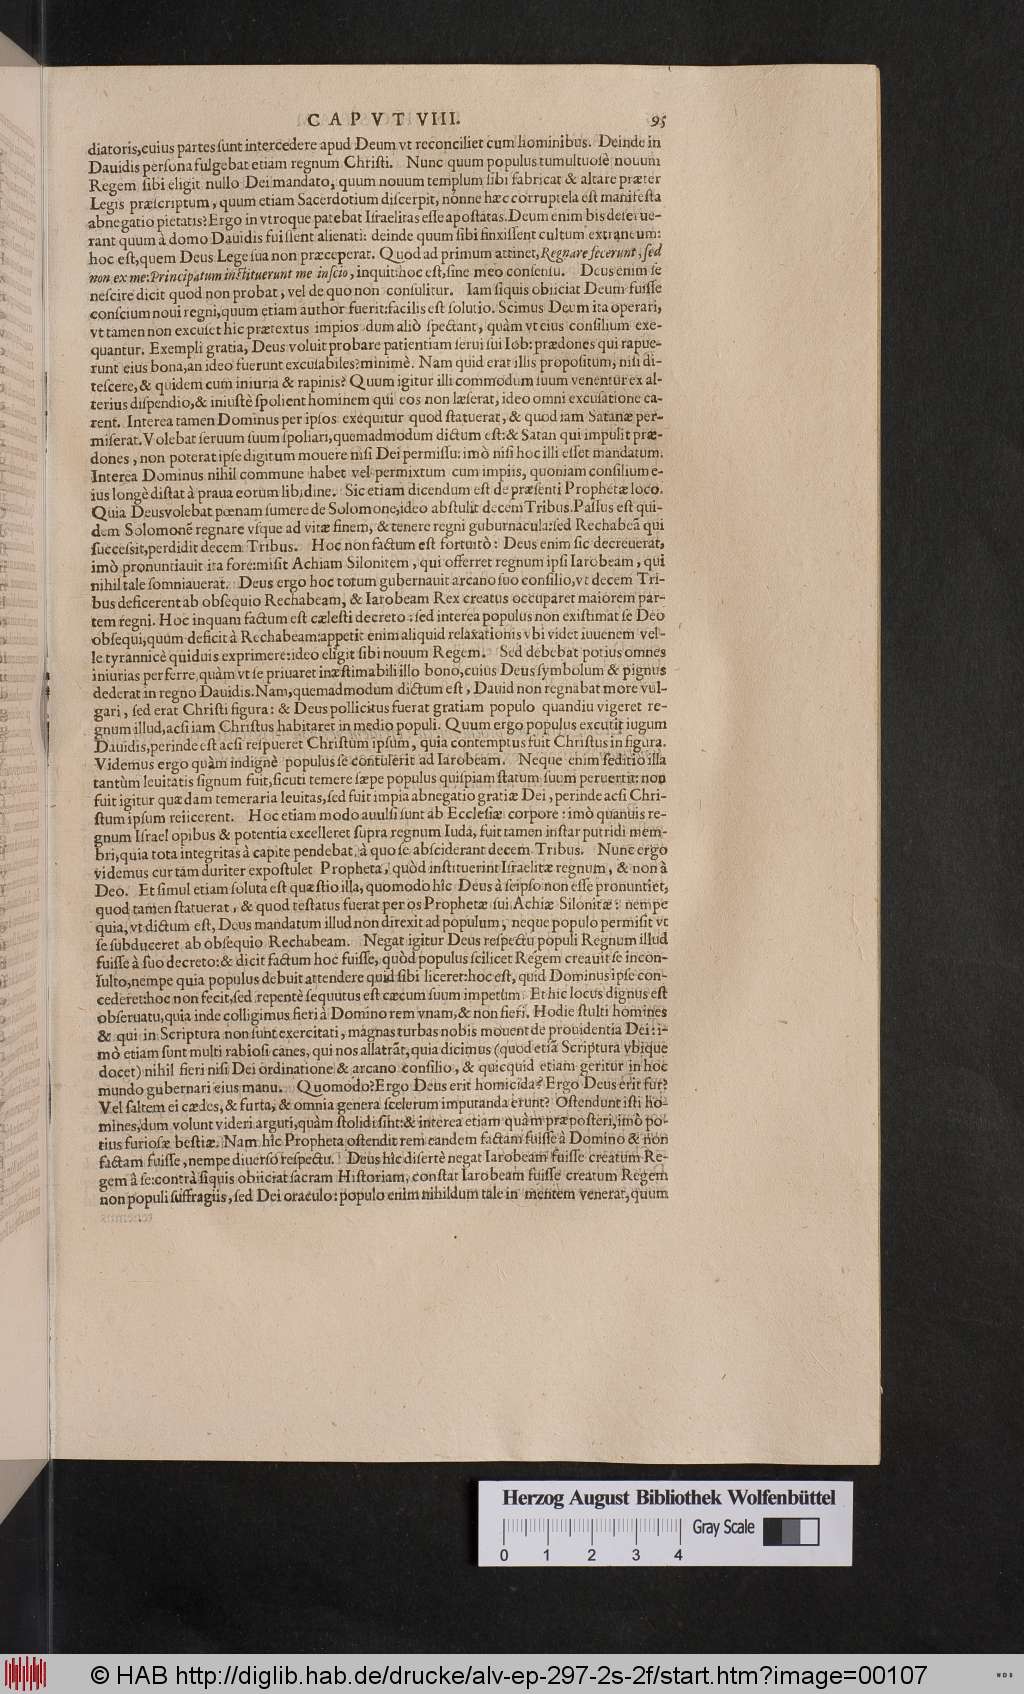 CAPVT VIII. 95
diatoris,cuius partes ſunt intercedere apud Deum vt reconciliet cum hominibus. Deinde in
Dauidis perſona fulgebat etiam regnum Chriſti. Nunc quum populus tumultuoſè nouum
Regem ſibi eligit nullo Dei mandato, quum nouum templum ſibi fabricat & altare præter
Legis præſcriptum, quum etiam Sacerdotium diſcerpit, nónne hæc corruptela eſt manifeſta
abnegatio pietatis? Ergo in vtroque patebat Iſraelitas eſſe apoſtatas. Deum enim bis deſerue-
rant quum à domo Dauidis fuiſſent alienati: deinde quum ſibi finxiſſent cultum extraneum:
hoc eſt,quem Deus Lege ſua non præceperat. Quod ad primum attinet, Regnare fecerunt, ſed
non ex me: Principatum inſtituerunt me inſcio, inquit: hoc eſt,ſine meo conſenſu. Deus enim ſe
neſcire dicit quod non probat, vel de quo non conſulitur. Iam ſiquis obiiciat Deum fuiſſe
conſcium noui regni,quum etiam author fuerit:facilis eſt ſolutio. Scimus Deum ita operari,
vt tamen non excuſet hic prætextus impios dum aliò ſpectant, quàm vt eius conſilium exe-
quantur. Exempli gratia, Deus voluit probare patientiam ſerui ſui Iob: prædones qui rapue-
runt eius bona,an ideo fuerunt excuſabiles? minimè. Nam quid erat illis propoſitum, niſi di-
teſcere,& quidem cum iniuria & rapinis? Quum igitur illi commodum ſuum venentur ex al-
terius diſpendio,& iniuſtè ſpolient hominem qui eos non læſerat, ideo omni excuſatione ca-
rent. Interea tamen Dominus per ipſos exequitur quod ſtatuerat, & quod iam Satanæ per-
miſerat. Volebat ſeruum ſuum ſpoliari,quemadmodum dictum eſt:& Satan qui impulit præ-
dones, non poterat ipſe digitum mouere niſi Dei permiſſu: imò niſi hoc illi eſſet mandatum.
Interea Dominus nihil commune habet vel permixtum cum impiis, quoniam conſilium e-
ius longè diſtat à praua eorum libidine. Sic etiam dicendum eſt de præſenti Prophetæ loco.
Quia Deus volebat pœnam ſumere de Solomone,ideo abſtulit decem Tribus. Paſſus eſt qui-
dem Solomonē regnare vſque ad vitæ finem, & tenere regni gubernacula:ſed Rechabeā qui
ſucceſsit,perdidit decem Tribus. Hoc non factum eſt fortuitò: Deus enim ſic decreuerat,
imò pronuntiauit ita fore:miſit Achiam Silonitem, qui offerret regnum ipſi Iarobeam, qui
nihil tale ſomniauerat. Deus ergo hoc totum gubernauit arcano ſuo conſilio,vt decem Tri-
bus deficerent ab obſequio Rechabeam, & Iarobeam Rex creatus occuparet maiorem par-
tem regni. Hoc inquam factum eſt cæleſti decreto: ſed interea populus non exiſtimat ſe Deo
obſequi,quum deficit à Rechabeam:appetit enim aliquid relaxationis vbi videt iuuenem vel-
le tyrannicè quiduis exprimere:ideo eligit ſibi nouum Regem. Sed debebat potius omnes
iniurias perferre,quàm vt ſe priuaret inæſtimabili illo bono,cuius Deus ſymbolum & pignus
dederat in regno Dauidis. Nam,quemadmodum dictum eſt, Dauid non regnabat more vul-
gari, ſed erat Chriſti figura: & Deus pollicitus fuerat gratiam populo quandiu vigeret re-
gnum illud,acſi iam Chriſtus habitaret in medio populi. Quum ergo populus excutit iugum
Dauidis,perinde eſt acſi reſpueret Chriſtum ipſum, quia contemptus fuit Chriſtus in figura.
Videmus ergo quàm indignè populus ſe contulerit ad Iarobeam. Neque enim ſeditio illa
tantùm leuitatis ſignum fuit,ſicuti temere ſæpe populus quiſpiam ſtatum ſuum peruertit: non
fuit igitur quædam temeraria leuitas,ſed fuit impia abnegatio gratiæ Dei, perinde acſi Chri-
ſtum ipſum reiicerent. Hoc etiam modo auulſi ſunt ab Eccleſiæ corpore: imò quanuis re-
gnum Iſrael opibus & potentia excelleret ſupra regnum Iuda, fuit tamen inſtar putridi mem-
bri,quia tota integritas à capite pendebat, à quo ſe abſciderant decem Tribus. Nunc ergo
videmus cur tam duriter expoſtulet Propheta, quòd inſtituerint Iſraelitæ regnum, & non à
Deo. Et ſimul etiam ſoluta eſt quæſtio illa, quomodo hîc Deus à ſeipſo non eſſe pronuntiet,
quod tamen ſtatuerat, & quod teſtatus fuerat per os Prophetæ ſui Achiæ Silonitæ: nempe
quia,vt dictum eſt, Deus mandatum illud non direxit ad populum, neque populo permiſit vt
ſe ſubduceret ab obſequio Rechabeam. Negat igitur Deus reſpectu populi Regnum illud
fuiſſe à ſuo decreto:& dicit factum hoc fuiſſe, quòd populus ſcilicet Regem creauit ſe incon-
ſulto,nempe quia populus debuit attendere quid ſibi liceret:hoc eſt, quid Dominus ipſe con-
cederet:hoc non fecit,ſed repentè ſequutus eſt cæcum ſuum impetum. Et hic locus dignus eſt
obſeruatu,quia inde colligimus fieri à Domino rem vnam,& non fieri. Hodie ſtulti homines
& qui in Scriptura non ſunt exercitati, magnas turbas nobis mouent de prouidentia Dei: i-
mò etiam ſunt multi rabioſi canes, qui nos allatrāt, quia dicimus (quod etiā Scriptura vbique
docet) nihil fieri niſi Dei ordinatione & arcano conſilio, & quicquid etiam geritur in hoc
mundo gubernari eius manu. Quomodo? Ergo Deus erit homicida? Ergo Deus erit fur?
Vel ſaltem ei cædes,& furta, & omnia genera ſcelerum imputanda erunt? Oſtendunt iſti ho-
mines,dum volunt videri arguti,quàm ſtolidi ſint:& interea etiam quàm præpoſteri,imò po-
tius furioſæ beſtiæ. Nam hîc Propheta oſtendit rem eandem factam fuiſſe à Domino & non
factam fuiſſe, nempe diuerſo reſpectu. Deus hîc diſertè negat Iarobeam fuiſſe creatum Re-
gem à ſe:contrà ſiquis obiiciat ſacram Hiſtoriam, conſtat Iarobeam fuiſſe creatum Regem
non populi ſuffragiis, ſed Dei oraculo: populo enim nihildum tale in mentem venerat,quum
Herzog August Bibliothek Wolfenbüttel
Gray Scale
0 1 2 3 4
© HAB http://diglib.hab.de/drucke/alv-ep-297-2s-2f/start.htm?image=00107